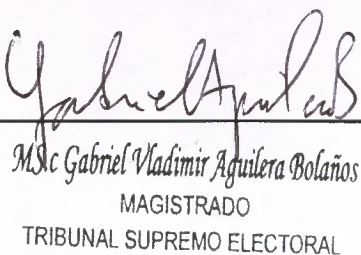 Gabriel Aguilera B
MSc Gabriel Vladimir Aguilera Bolaños
MAGISTRADO
TRIBUNAL SUPREMO ELECTORAL